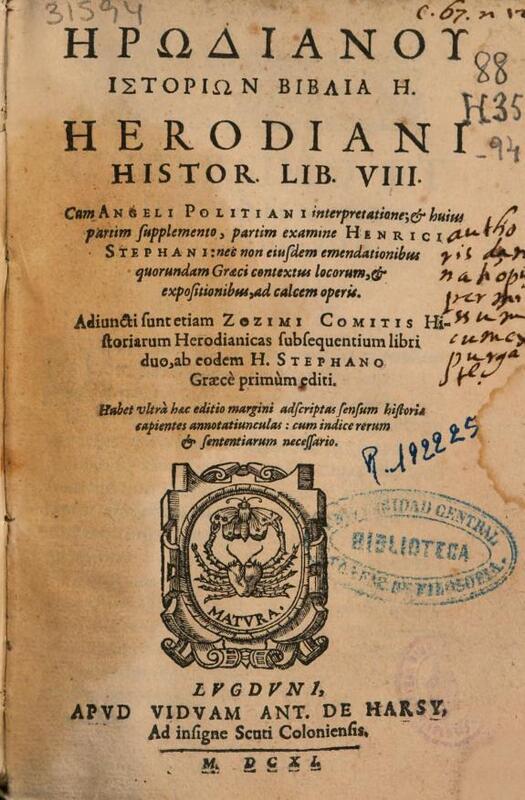 31594
C. 67. n
ΗΡΩΔΙΑΝΟΥ
ΙΣΤΟΡΙΩΝ ΒΙΒΛΙΑ Η.
88
H35
-94
HERODIANI
HISTOR. LIB. VIII.
Cum ANGELI POLITIANI interpretatione; & huius
partim supplemento, partim examine HENRICI
STEPHANI: nec non eiusdem emendationibus
quorundam Græci contextus locorum, &
expositionibus, ad calcem operis.
autho
ris dam
nati opus
permi
ssum
cum ex
purga
Adiuncti sunt etiam ZOZIMI COMITIS Hi-
storiarum Herodianicas subsequentium libri
duo, ab eodem H. STEPHANO
Græcè primùm editi.
Habet vltrà hæc editio margini adscriptas sensum historiæ
capientes annotatiunculas: cum indice rerum
& sententiarum necessario.
R. 192225
UNIVERSIDAD CENTRAL
BIBLIOTECA
DE FILOSOFIA.
MATVRA.
LVGDVNI,
APVD VIDVAM ANT. DE HARSY,
Ad insigne Scuti Coloniensis.
M. DCXI.